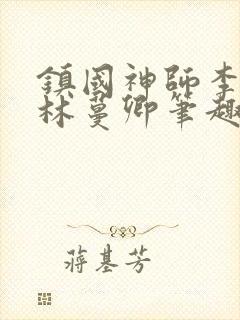 鎮國神師李
林蔓卿筆趣
蔣基芳